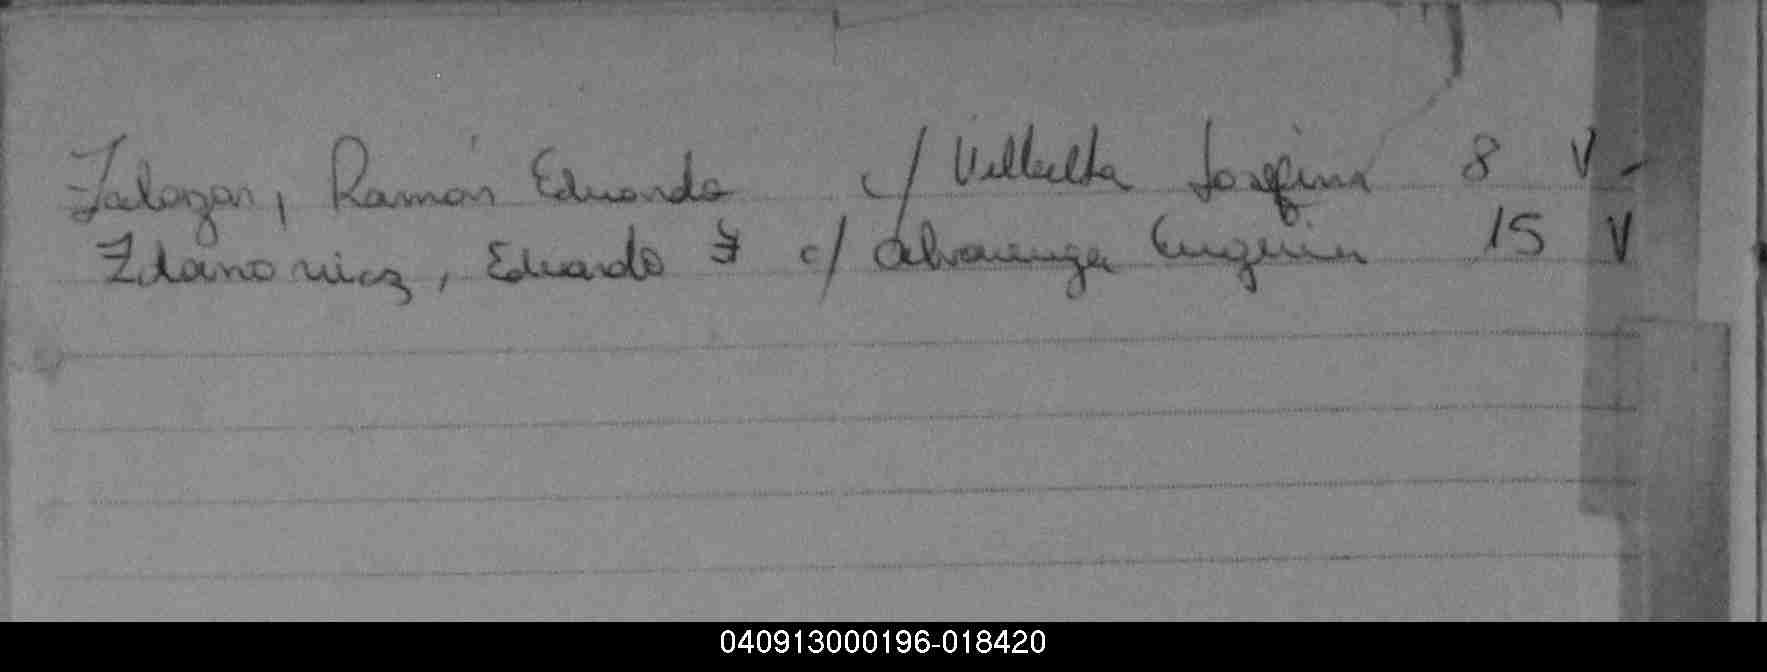 Zalazar, Ramón Eduardo c/ Villalta Josefina 8 V -
Zdanowicz, Eduardo F c/ Alvarenga Eugenia 15 V
040913000196-018420